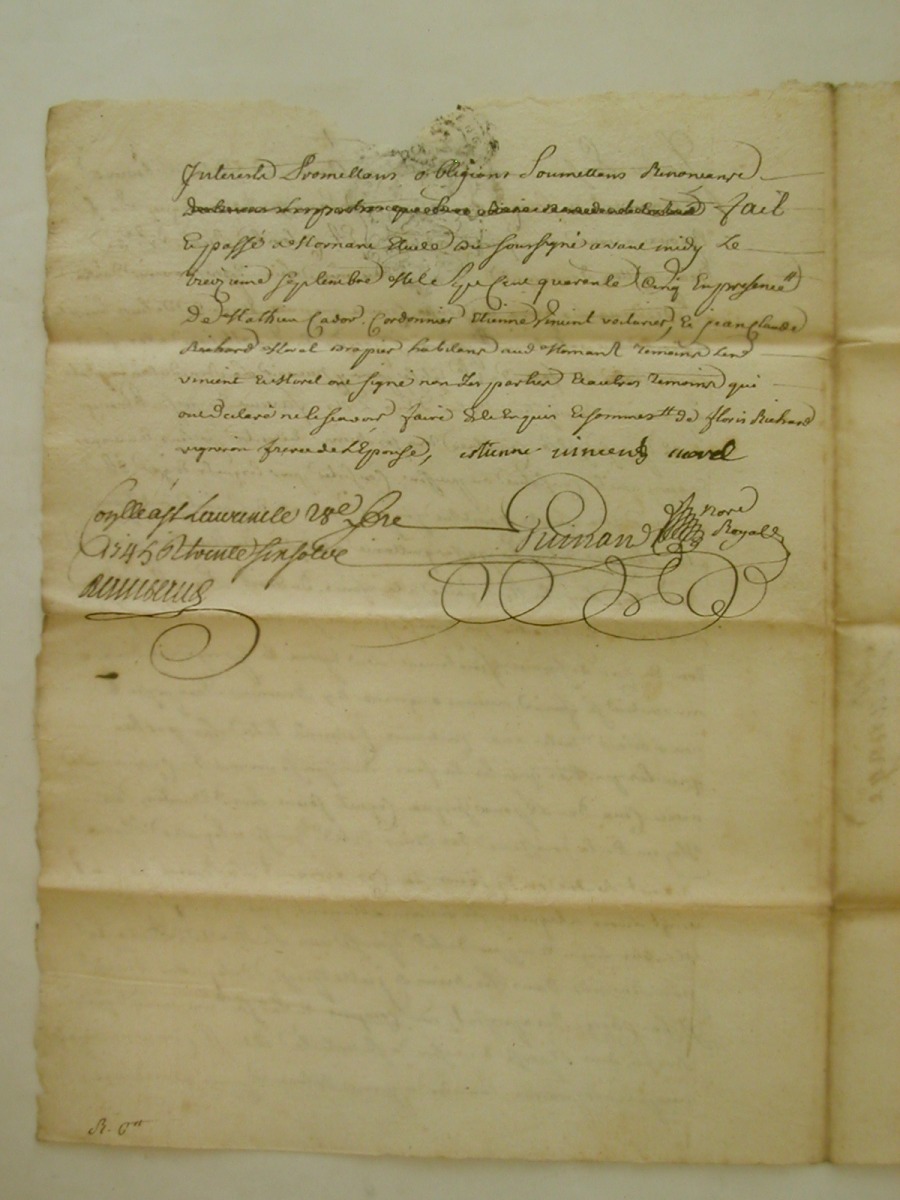 Interests Promettans obligeans Soumettans Renonceans
fait
Et passé a Mornant Etude du soussigné avant midy Le
treizieme septembre Mil Sept Cent quarente Cinq En presence
De Mathieu Cador Cordonnier Etienne Vincent voiturier, Et jean Claude
Richard Morel drapier habitans aud Mornant Temoins Led
vincent Et Morel ont signé non Les parties Et autres Temoins qui
ont declaré ne le scavoir faire de ce Enquis Et sommés de floris Richard
vigneron frere de L'Epouse, estienne vincent morel
Conllé a St Laurent le 28e 7bre
1745 R trente six sols
Guinand Nore Royal
R. 6